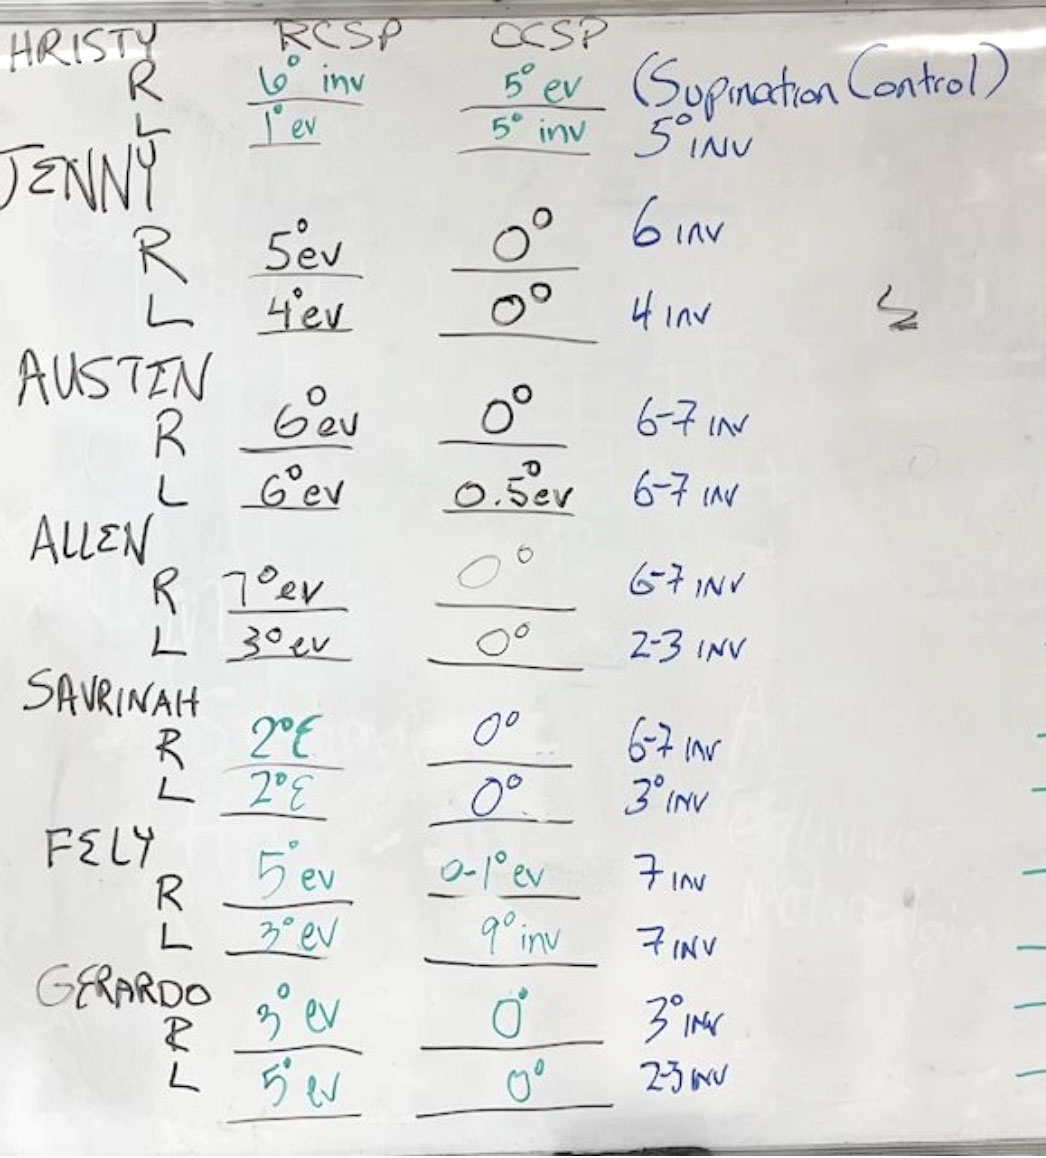 HRISTY RCSP OCSP
R 6° inv 5° ev (Supination Control)
L 1° ev 5° inv 5° INV
JENNY
R 5° ev 0° 6 INV
L 4° ev 0° 4 INV
AUSTIN
R 6° ev 0° 6-7 INV
L 6° ev 0.5° ev 6-7 INV
ALLEN
R 7° ev 0° 6-7 INV
L 3° ev 0° 2-3 INV
SAVRINAH
R 2° E 0° 6-7 INV
L 2° E 0° 3° INV
FELY
R 5° ev 0-1° ev 7 INV
L 3° ev 9° inv 7 INV
GERARDO
R 3° ev 0° 3° INV
L 5° ev 0° 2-3 INV